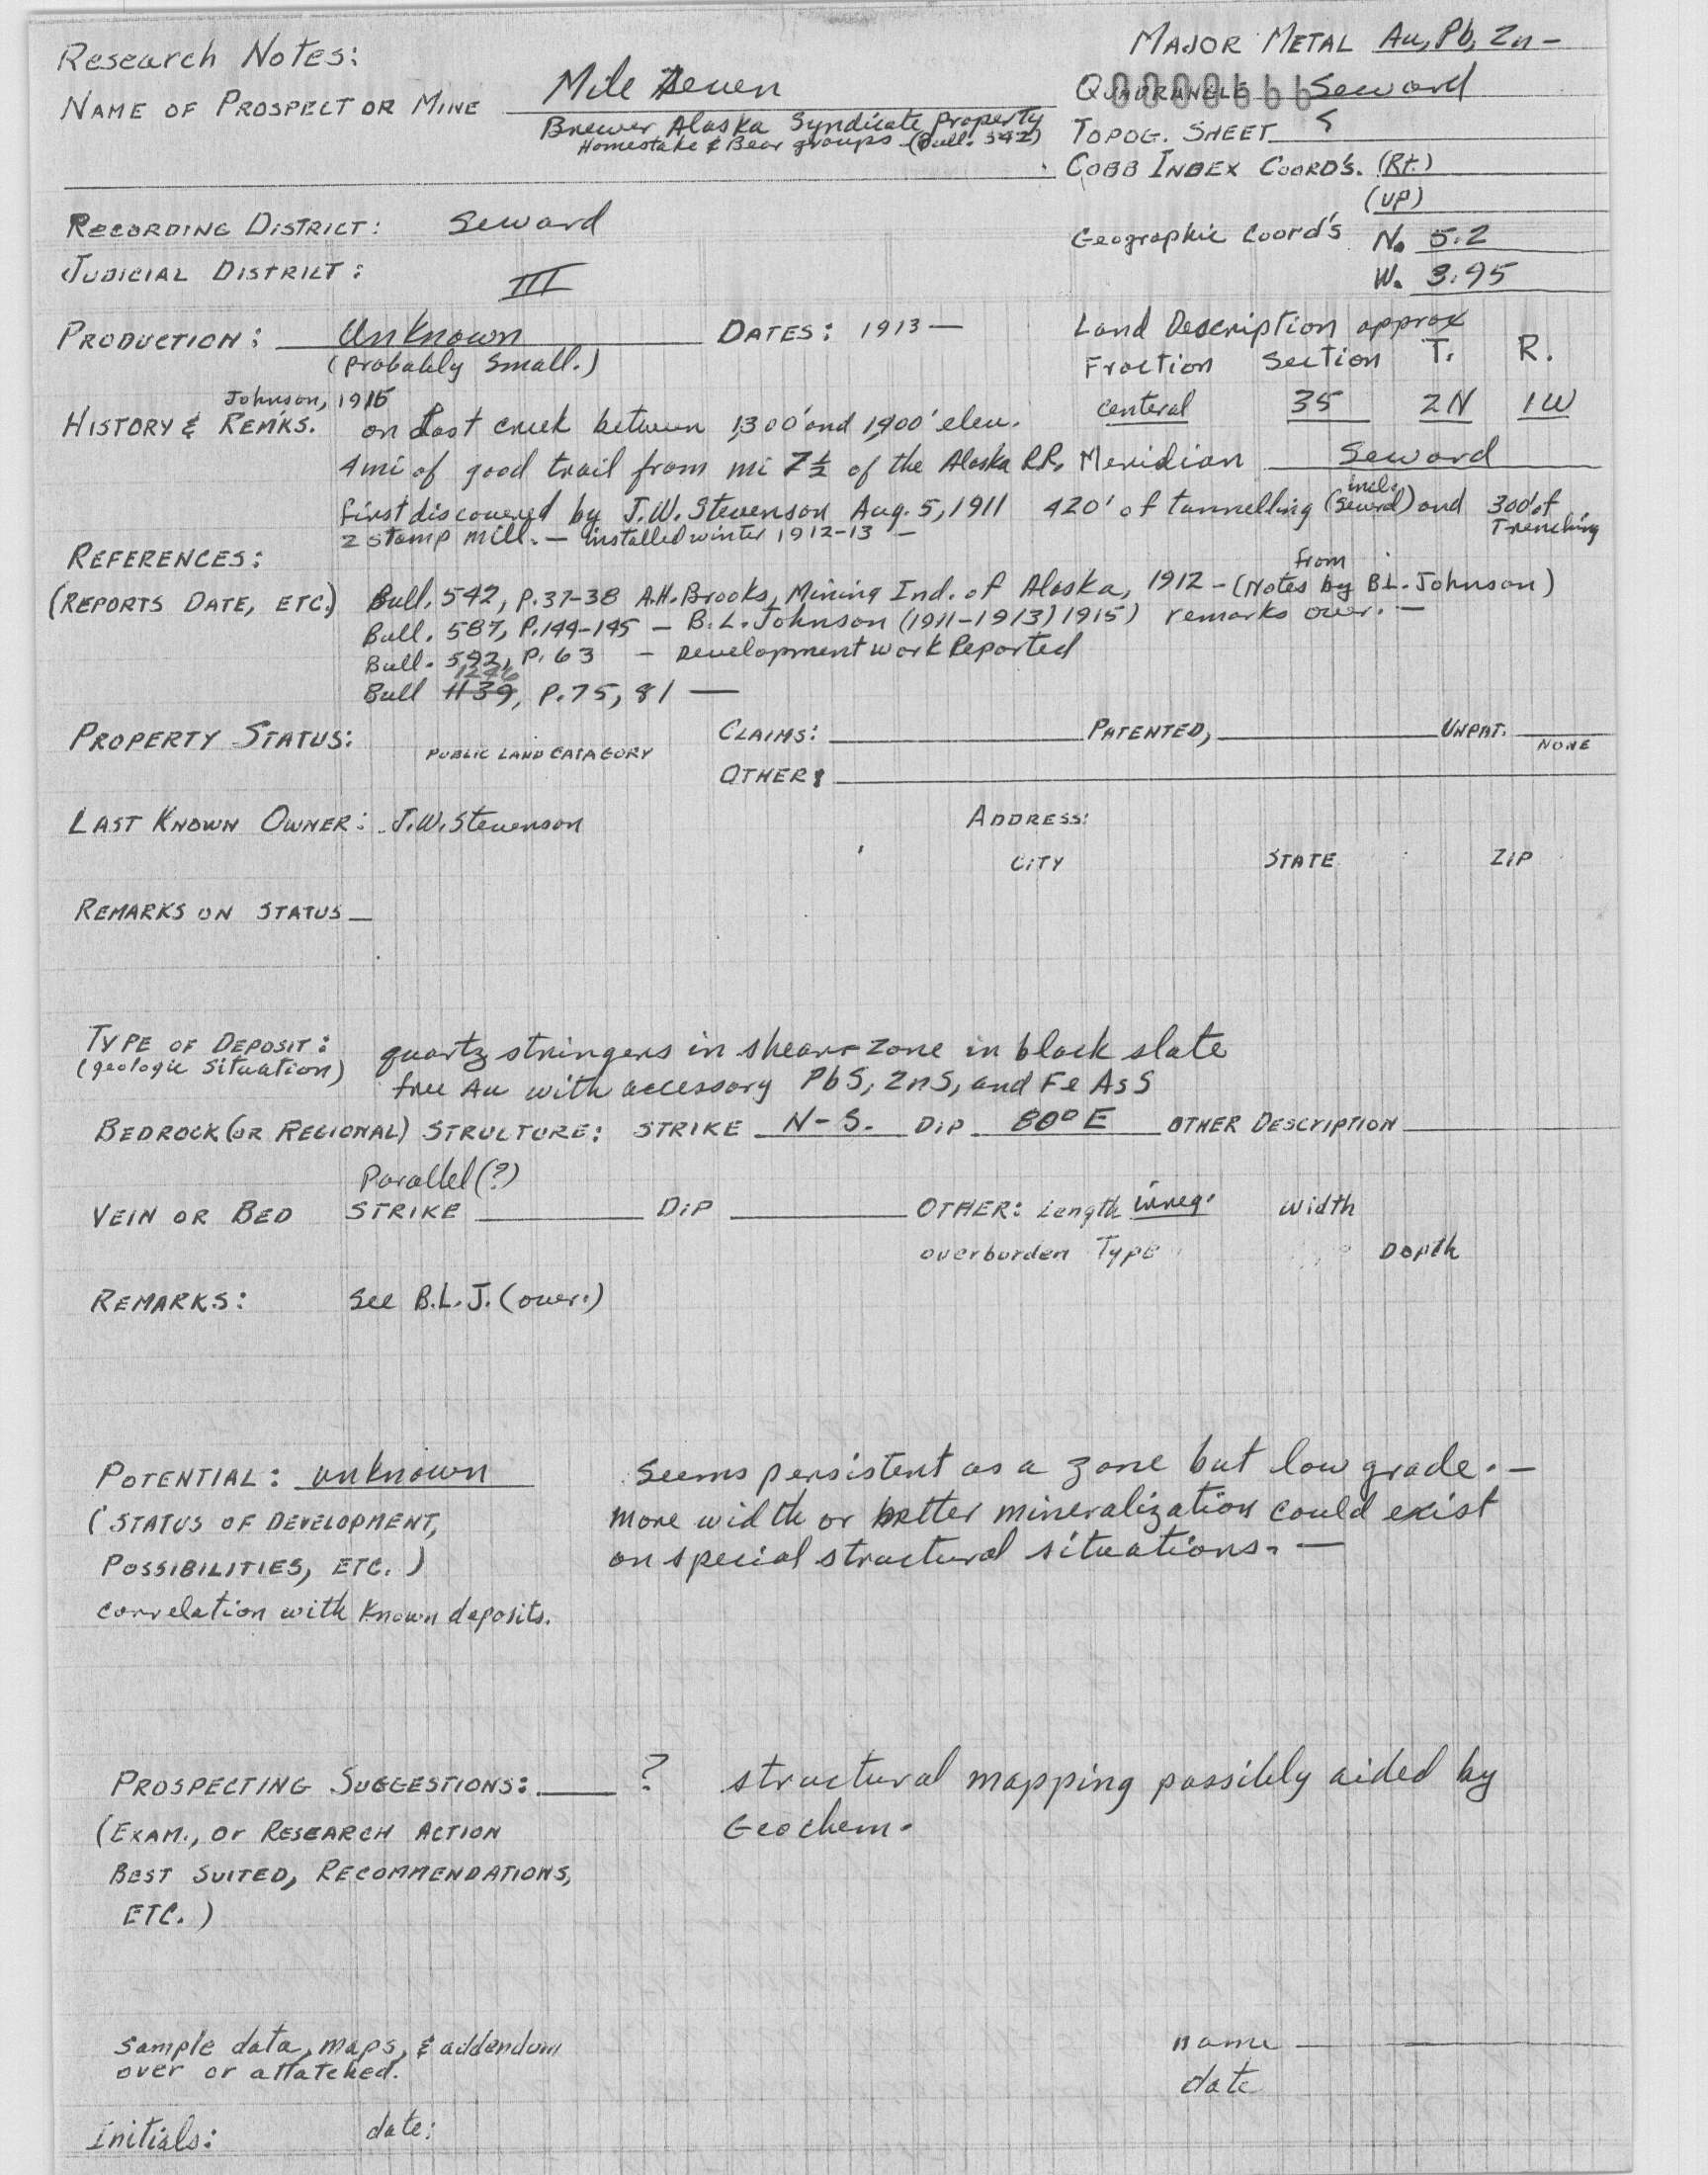 Research Notes:
MAJOR METAL Au, Pb, Zn -
NAME OF PROSPECT OR MINE Mile Seven
QUADRANGLE Seward
Brewer Alaska Syndicate Property
Homestake & Bear groups (Bull. 542)
TOPOG. SHEET
COBB INDEX COORD'S. (Rt.)
(UP)
RECORDING DISTRICT: Seward
Geographic Coord's N. 5.2
W. 3.95
JUDICIAL DISTRICT: III
PRODUCTION: Unknown DATES: 1913 —
(probably small.)
Land Description approx
Fraction Section T. R.
centeral 35 2N 1W
Johnson, 1915
HISTORY & REMKS. on Lost creek between 1,300' and 1,900' elev.
4 mi of good trail from mi 7½ of the Alaska R.R. Meridian Seward
first discovered by J.W. Stevenson Aug. 5, 1911 420' of tunnelling (incl. Sewrd) and 300' of Trenching
2 stamp mill. — installed winter 1912-13 —
REFERENCES:
(REPORTS DATE, ETC.) Bull. 542, P. 37-38 A.H. Brooks, Mining Ind. of Alaska, 1912 - (Notes from by B.L. Johnson)
Bull. 587, P. 144-145 — B.L. Johnson (1911-1913) 1915) remarks over. —
Bull. 592, P. 63 — Development work Reported
1246
Bull 1139, P. 75, 81 —
PROPERTY STATUS: PUBLIC LAND CATAGORY CLAIMS: PATENTED, UNPAT. NONE
OTHER:
LAST KNOWN OWNER: J.W. Stevenson ADDRESS:
CITY STATE ZIP
REMARKS ON STATUS —
TYPE OF DEPOSIT: quartz stringers in shear-zone in black slate
(geologic situation) free Au with accessory PbS, ZnS, and FeAsS
BEDROCK (OR REGIONAL) STRUCTURE: STRIKE N-S. DIP 80° E OTHER DESCRIPTION
Parallel (?)
VEIN OR BED STRIKE DIP OTHER: Length irreg. width
overburden Type Depth
REMARKS: See B.L.J. (over.)
POTENTIAL: unknown Seems persistent as a zone but low grade. —
(STATUS OF DEVELOPMENT, more width or better mineralization could exist
POSSIBILITIES, ETC.) on special structural situations. —
correlation with known deposits.
PROSPECTING SUGGESTIONS: ? structural mapping possibly aided by
(EXAM., or RESEARCH ACTION Geochem.
BEST SUITED, RECOMMENDATIONS,
ETC.)
sample data, maps, & addendum name
over or attatched. date
Initials: date: